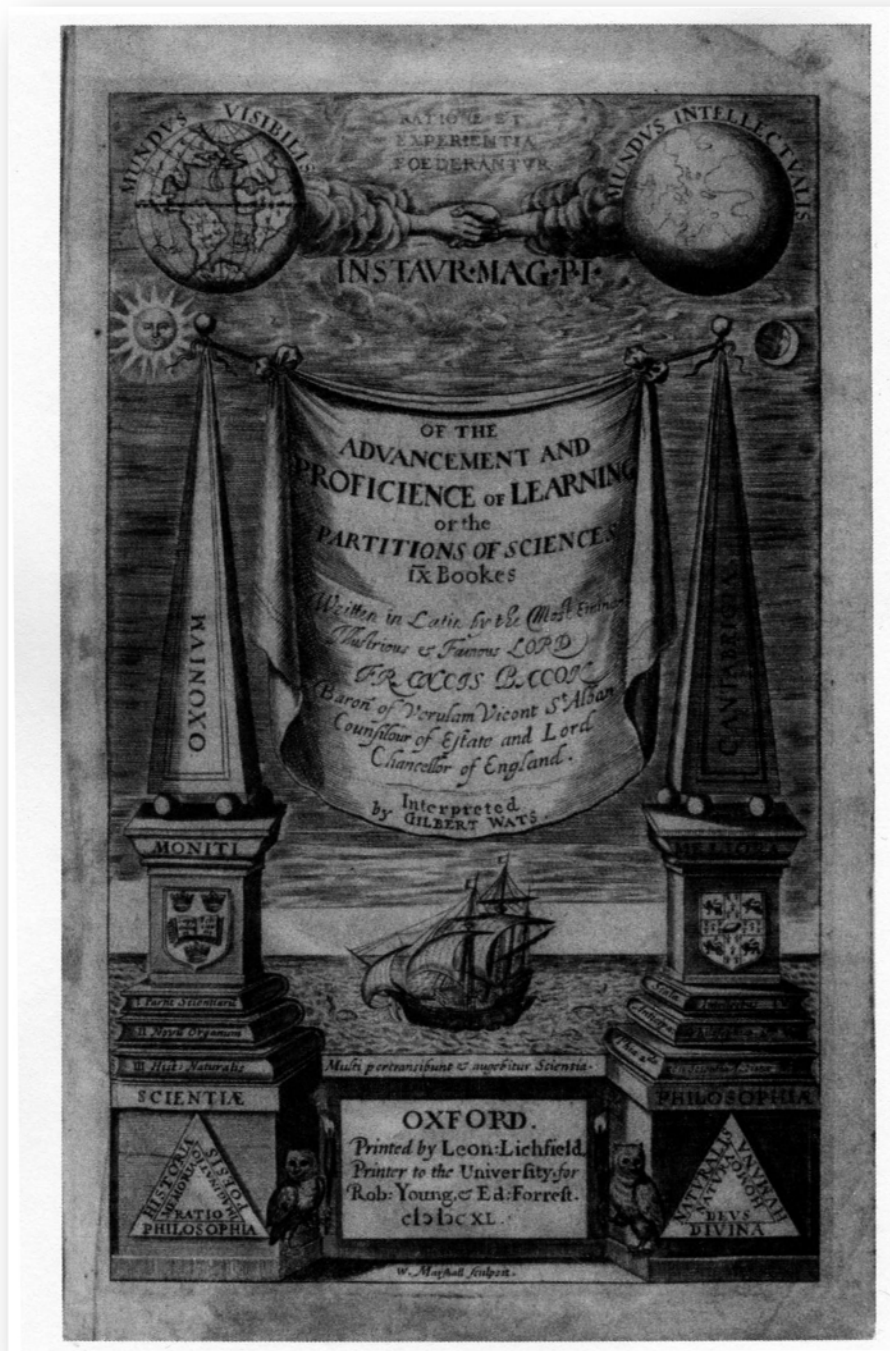 MUNDVS VISIBILIS
RATIONE ET
EXPERIENTIA
FOEDERANTVR
MUNDVS INTELLECTVALIS
INSTAVR·MAG·P·I·
OF THE
ADVANCEMENT AND
PROFICIENCE OF LEARNING
or the
PARTITIONS OF SCIENCES
IX Bookes
Written in Latin by the Most Eminent
Illustrious & Famous LORD
FRANCIS BACON
Baron of Verulam Vicont St Alban
Counsilour of Estate and Lord
Chancellor of England.
Interpreted
by GILBERT WATS.
OXONIUM
CANTABRIGIA
MONITI
MELIORA
I Partit Scientiarū
II Novū Organum
III Hist: Naturalis
Scala
Multi pertransibunt & augebitur Scientia·
SCIENTIÆ
PHILOSOPHIÆ
HISTORIA
MEMORIA
POESIS
IMAGINATIO
RATIO
PHILOSOPHIA
OXFORD.
Printed by Leon: Lichfield,
Printer to the University, for
Rob: Young, & Ed: Forrest.
cIↄ Iↄc XL.
NATURALIS
NATURA
HUMANA
HOMO
DEVS
DIVINA
W. Marshall sculpsit.